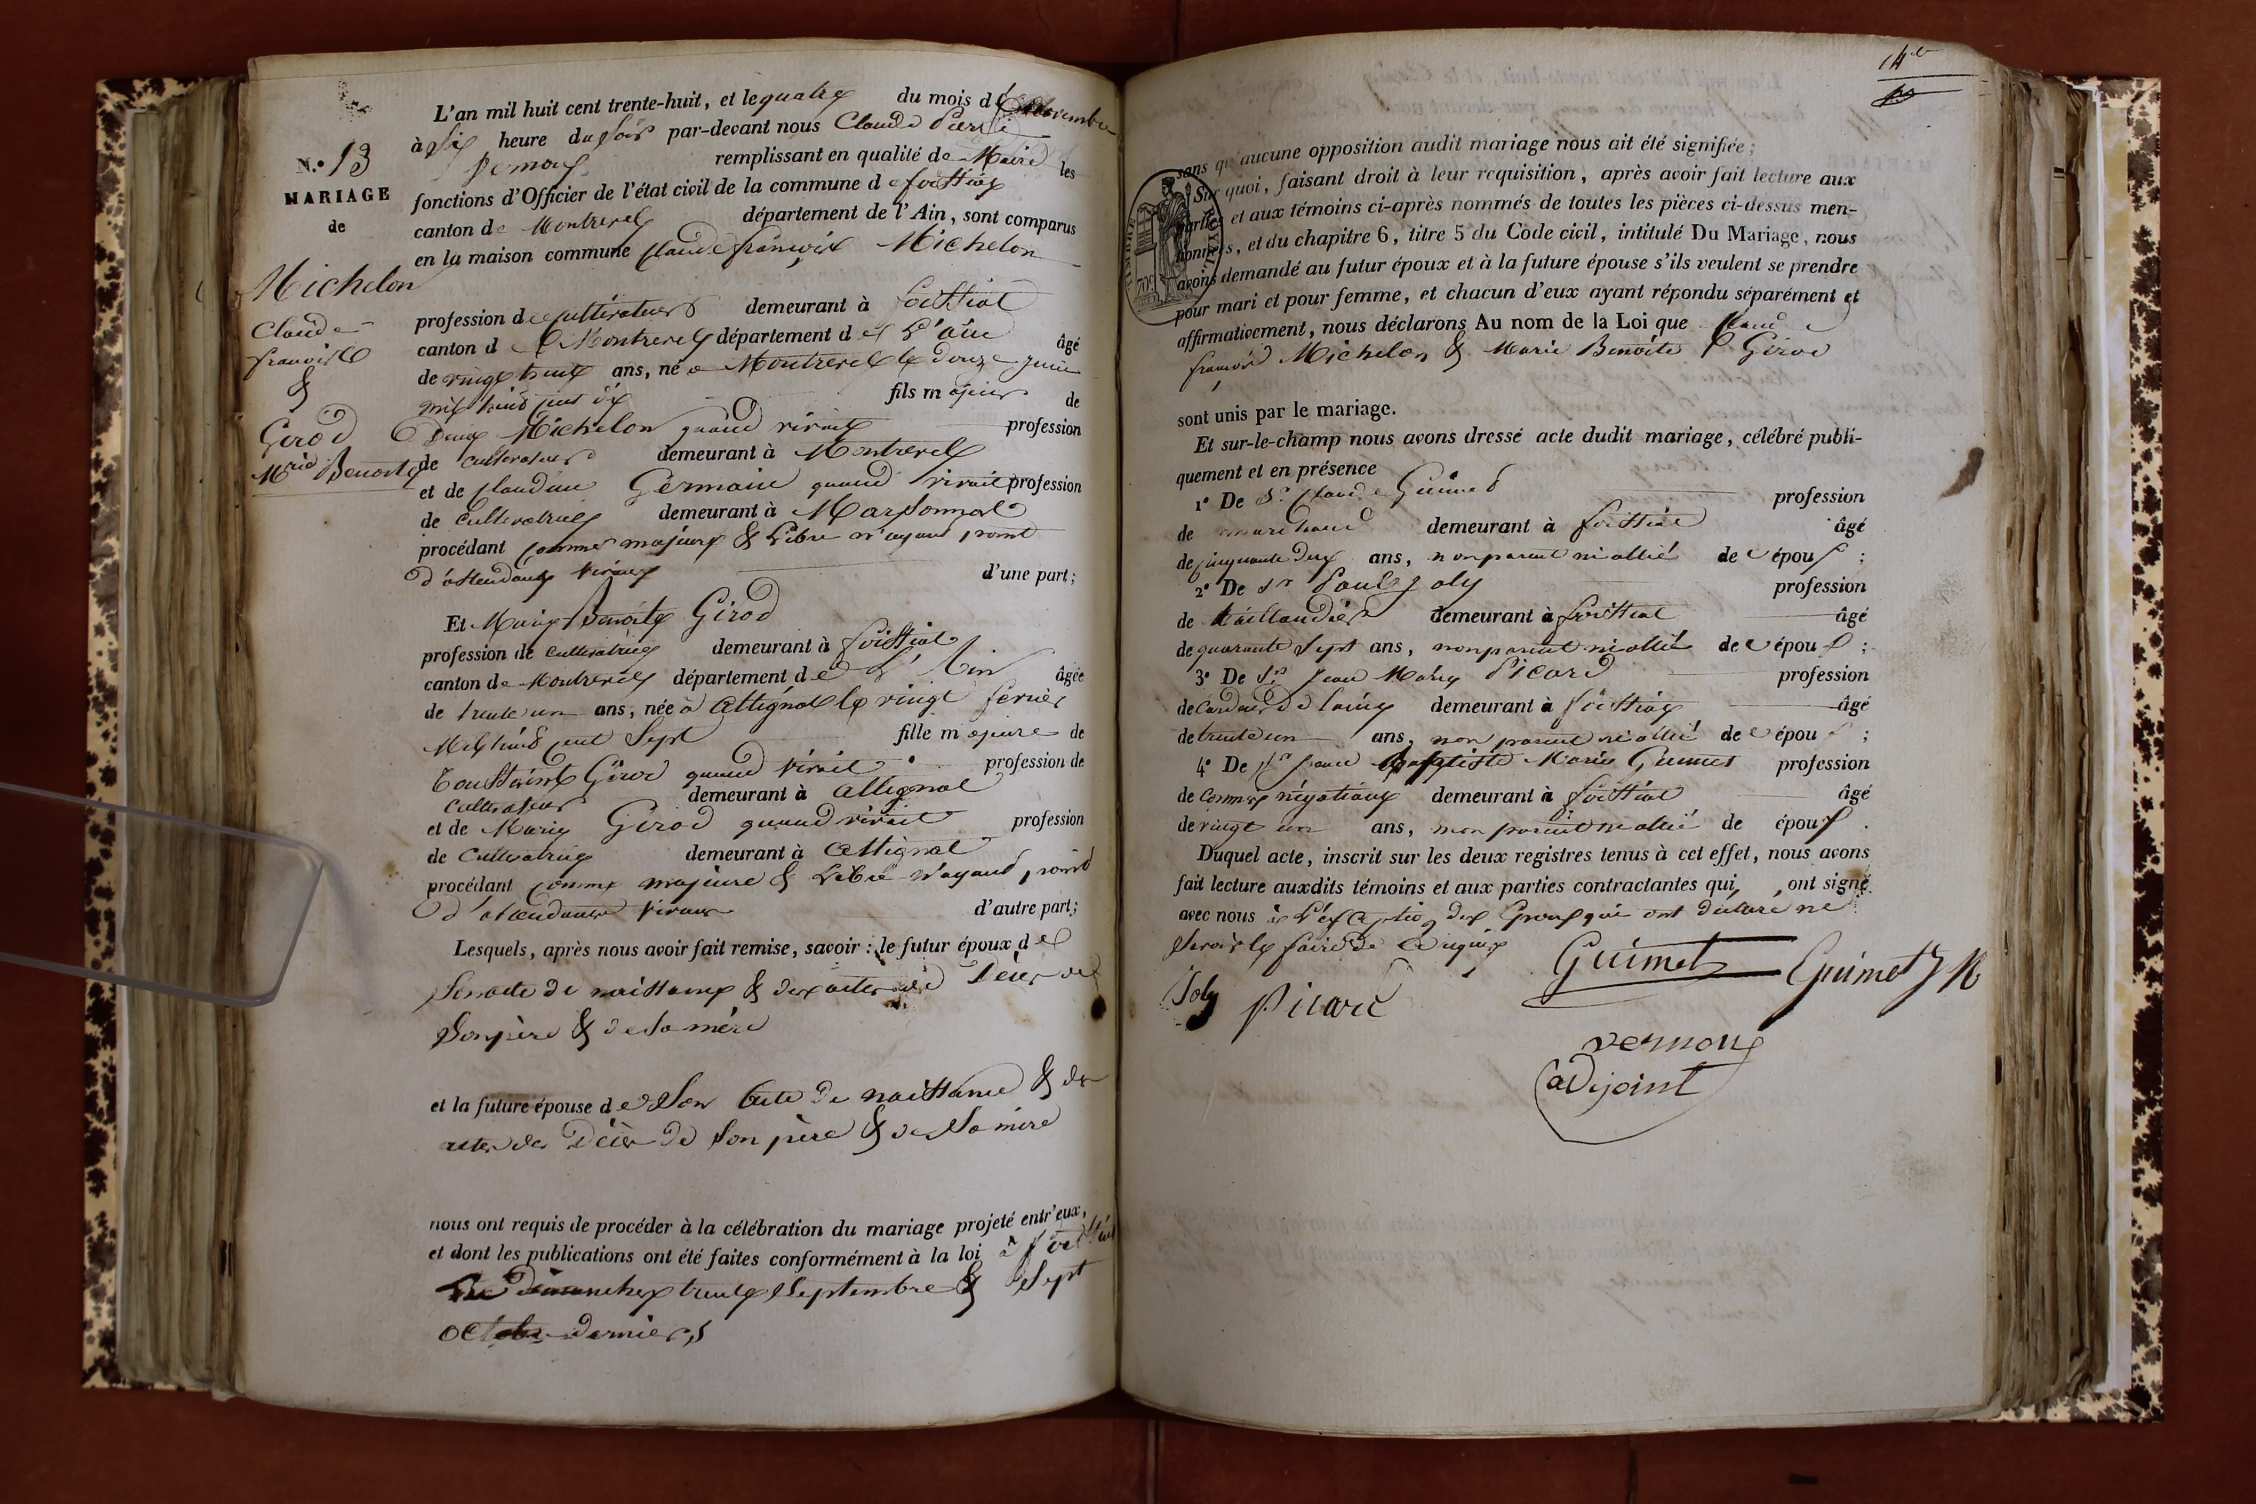 L'an mil huit cent trente-huit, et le quatre du mois de Novembre
à six heure du soir par-devant nous Claude Pierre
Vernoux remplissant en qualité de Maire les
N.º 13
MARIAGE
de
Michelon
Claude
françois
&
Girod
Marie Benoite
fonctions d'Officier de l'état civil de la commune de foissiat
canton de Montrevel département de l'Ain, sont comparus
en la maison commune Claude françois Michelon
profession de cultivateur demeurant à foissiat
canton d e Montrevel département de L'ain âgé
de vingt huit ans, né a Montrevel le douze juin
mil huit cent dix fils majeur de
Michelon quand vivait profession
de cultivateur demeurant à Montrevel
et de Claudine Germain quand vivait profession
de cultivatrice demeurant à Marsonnas
procédant comme majeur & Libre n'ayant point
d'assendants vivans d'une part;
Et Marie Benoite Girod
profession de cultivatrice demeurant à foissiat
canton de Montrevel département de L'Ain âgée
de trente un ans, née à Attignat le vingt février
Mil huit cent Sept fille majeure de
Toussaint Girod quand vivait profession de
cultivateur demeurant à Attignat
et de Marie Girod quand vivait profession
de cultivatrice demeurant à Attignat
procédant comme majeure & Libre n'ayant point
d'assendants vivans d'autre part;
Lesquels, après nous avoir fait remise, savoir : le futur époux de
Son acte de naissance & des actes de Décès de
Son père & de sa mère
et la future épouse de Son Acte de naissance & des
actes de Décès de Son père & de Sa mère
nous ont requis de procéder à la célébration du mariage projeté entr'eux,
et dont les publications ont été faites conformément à la loi à foissiat
Dimanches trente Septembre & Sept
Octobre derniers
14e
sans qu'aucune opposition audit mariage nous ait été signifiée;
Sur quoi, faisant droit à leur requisition, après avoir fait lecture aux
parties et aux témoins ci-après nommés de toutes les pièces ci-dessus men-
tionnées, et du chapitre 6, titre 5 du Code civil, intitulé Du Mariage, nous
avons demandé au futur époux et à la future épouse s'ils veulent se prendre
pour mari et pour femme, et chacun d'eux ayant répondu séparément et
affirmativement, nous déclarons Au nom de la Loi que Claude
françois Michelon & Marie Benoite Girod
sont unis par le mariage.
Et sur-le-champ nous avons dressé acte dudit mariage, célébré publi-
quement et en présence
1º De Sr Claude Guimet profession
de marchand demeurant à foissiat âgé
de cinquante deux ans, non parent ni allié de époux ;
2º De Sr Paul Joly profession
de taillandier demeurant à foissiat âgé
de quarante Sept ans, non parent ni allié de époux ;
3º De Sr Jean Marie Picard profession
de Cardeur de laine demeurant à foissiat âgé
de trente un ans, non parent ni allié de époux ;
4º De Sr Jean Baptiste Marie Guimet profession
de Commis négotiant demeurant à foissiat âgé
de vingt un ans, non parent ni allié de époux .
Duquel acte, inscrit sur les deux registres tenus à cet effet, nous avons
fait lecture auxdits témoins et aux parties contractantes qui ont signé
avec nous à L'exception des Epoux qui ont déclaré ne
Savoir le faire de ce requis
Joly Picard Guimet Guimet J M
vernoux
adjoint